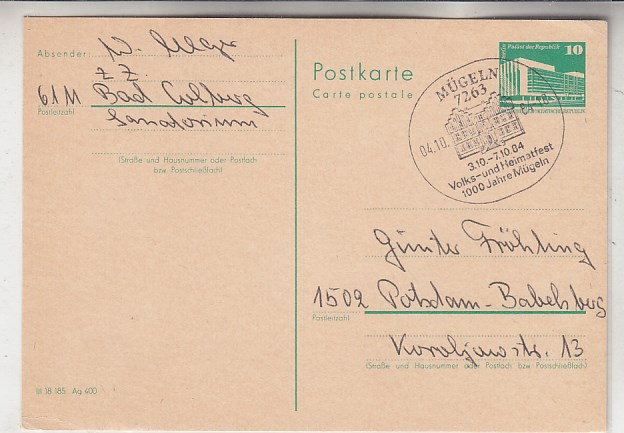 Absender:
W.
z. Z.
6111 Bad Colberg
Postleitzahl
Sanatorium
(Straße und Hausnummer oder Postfach
bzw. Postschließfach)
III 18 185 Ag 400
Postkarte
Carte postale
Palast der Republik 10
MÜGELN
7263
04.10.
3.10.-7.10.84
Volks- und Heimatfest
1000 Jahre Mügeln
Günter Fröhling
1502 Potsdam-Babelsberg
Postleitzahl
Koroljowstr. 13
(Straße und Hausnummer oder Postfach bzw Postschließfach)